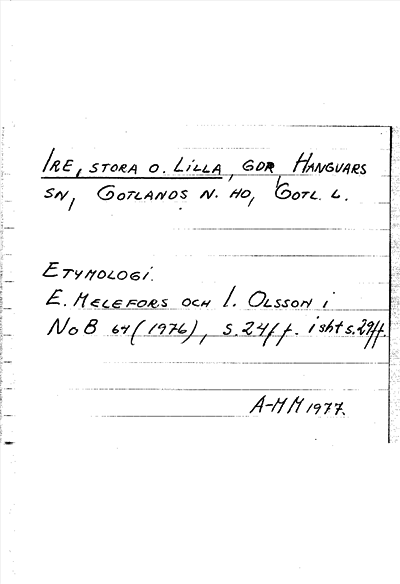 IRE, STORA O. LILLA, GDR, HANGVARS
SN, GOTLANDS N. HD, GOTL. L.
ETYMOLOGI.
E. MELEFORS OCH I. OLSSON i
NoB 64 (1976), s. 24ff. isht s. 29ff.
A-MM 1977.